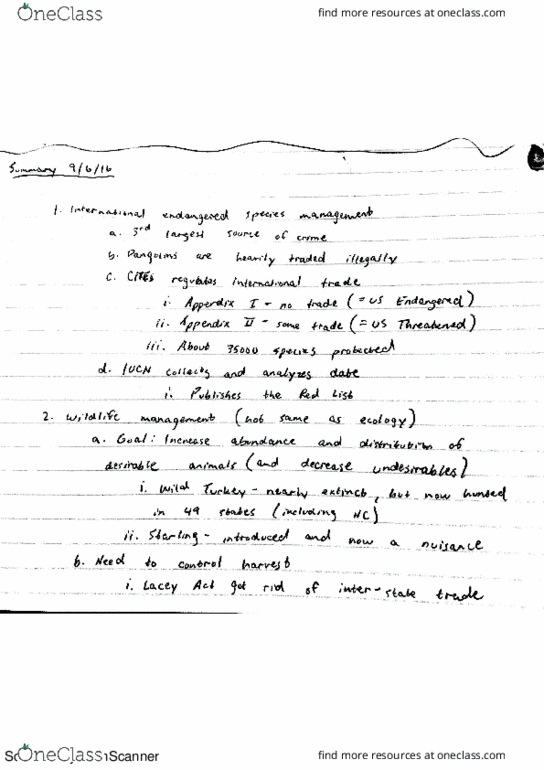 OneClass
find more resources at oneclass.com
Summary 9/6/16
1. International endangered species management
a. 3rd largest source of crime
b. Pangolins are heavily traded illegally
c. CITES regulates international trade
i. Appendix I - no trade (= US Endangered)
ii. Appendix II - some trade (= US Threatened)
iii. About 35000 species protected
d. IUCN collects and analyzes data
i. Publishes the Red List
2. Wildlife management (not same as ecology)
a. Goal: Increase abundance and distribution of
desirable animals (and decrease undesirables)
i. Wild Turkey - nearly extinct, but now hunted
in 49 states (including NC)
ii. Starling - introduced and now a nuisance
b. Need to control harvest
i. Lacey Act got rid of inter-state trade
OneClass
Scanner
find more resources at oneclass.com